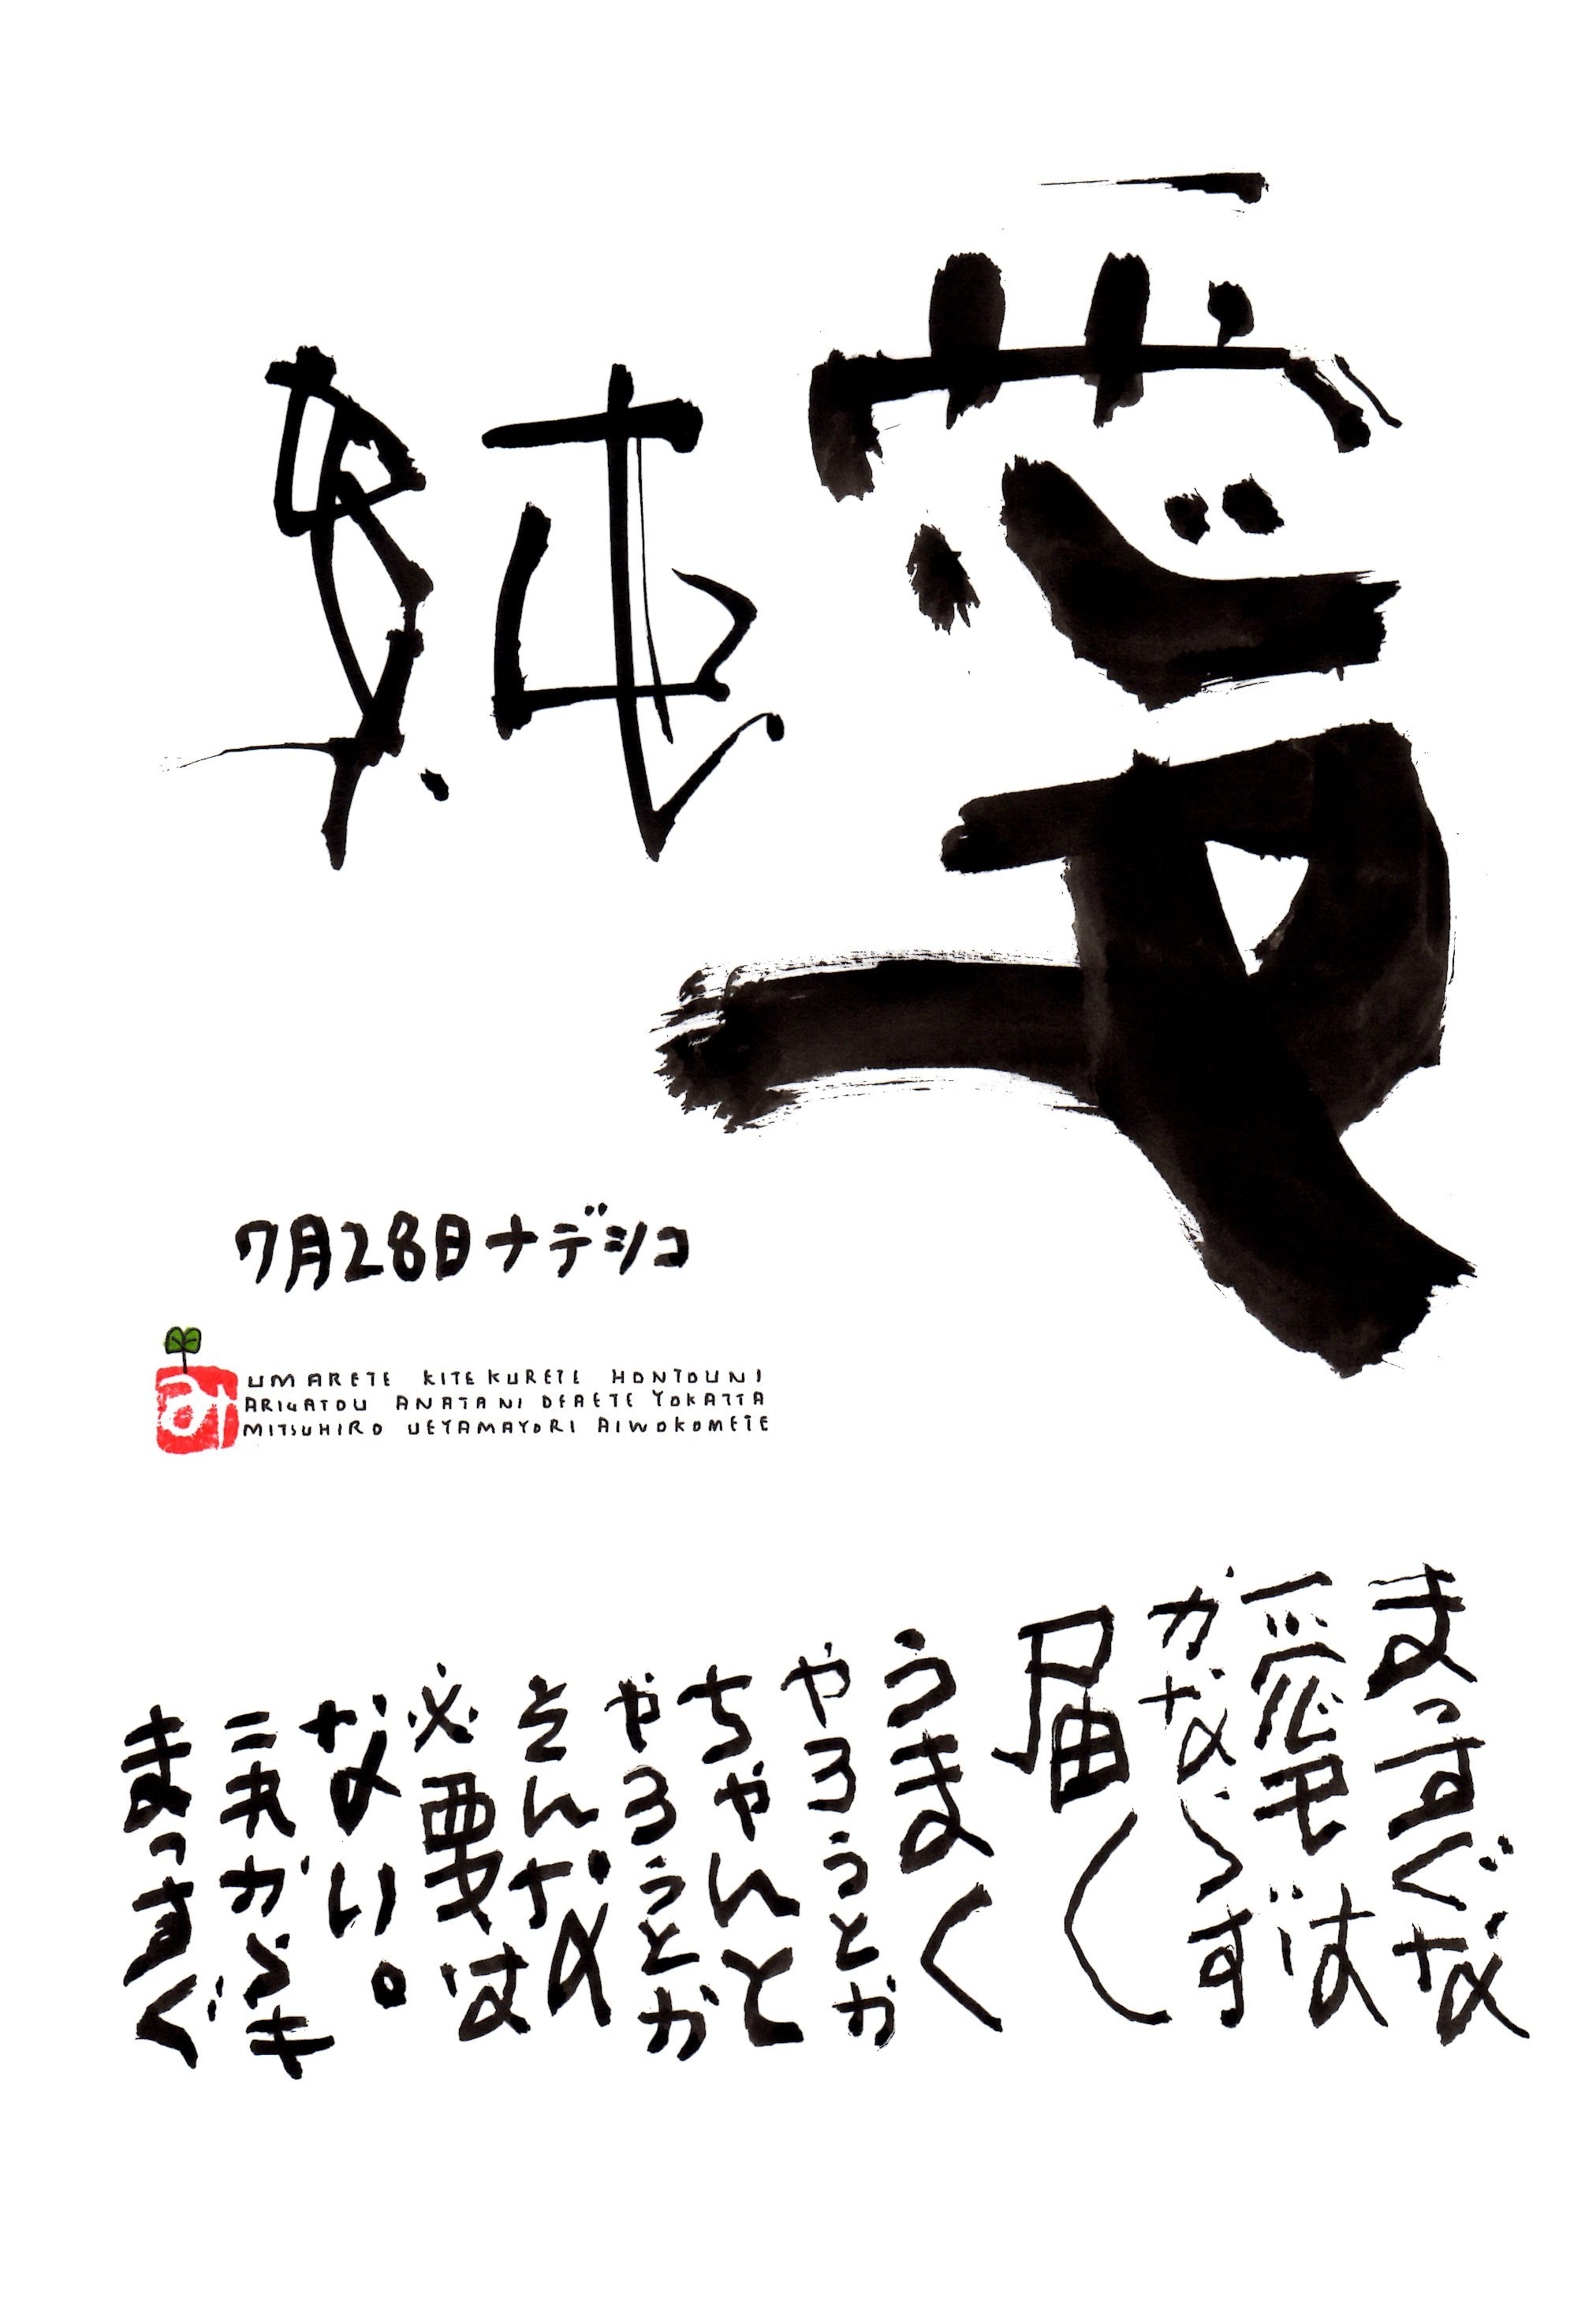 純愛
7月28日ナデシコ
UMARETE KITEKURETE HONTOUNI
ARIGATOU ANATANI DEAETE YOKATTA
MITSUHIRO UEYAMAYORI AIWOKOMETE
まっすぐな
愛は
かならず
届く
うまく
やろうとか
ちゃんと
やろうとか
そんな
必要は
ない。
これからも
まっすぐ